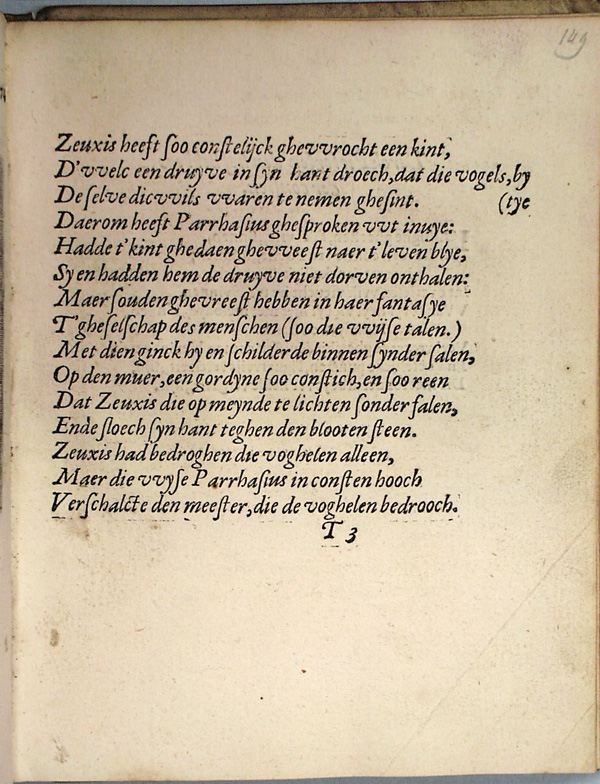 149
Zeuxis heeft soo constelijck ghevvrocht een kint,
D'vvelc een druyve in syn hant droech, dat die vogels, by
De selve dicvvils vvaren te nemen ghesint. (tye
Daerom heeft Parrhasius ghesproken vvt inuye:
Hadde t'kint ghedaen ghevveest naer t'leven blye,
Sy en hadden hem de druyve niet dorven onthalen:
Maer souden ghevreest hebben in haer fantasye
T'gheselschap des menschen (soo die vvijse talen.)
Met dien ginck hy en schilderde binnen synder salen,
Op den muer, een gordyne soo constich, en soo reen
Dat Zeuxis die op meynde te lichten sonder falen,
Ende sloech syn hant teghen den blooten steen.
Zeuxis had bedroghen die voghelen alleen,
Maer die vvyse Parrhasius in consten hooch
Verschalcte den meester, die de voghelen bedrooch.
T 3